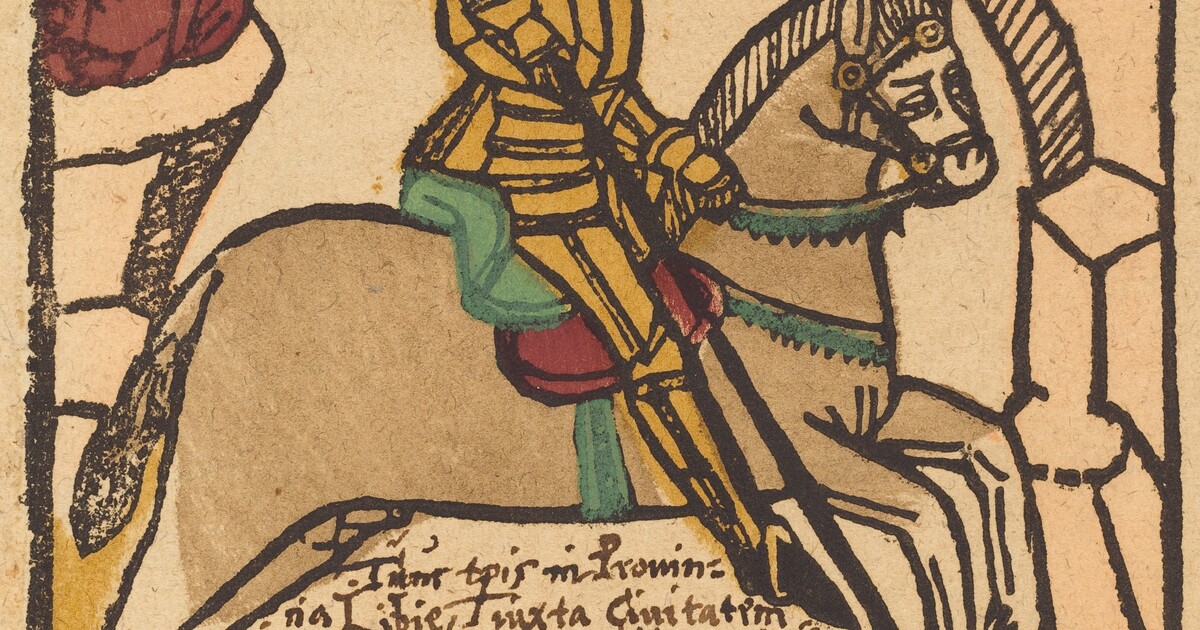 Tunc tp̄is in Prouin=
cia Libie Juxta Ciuitatem